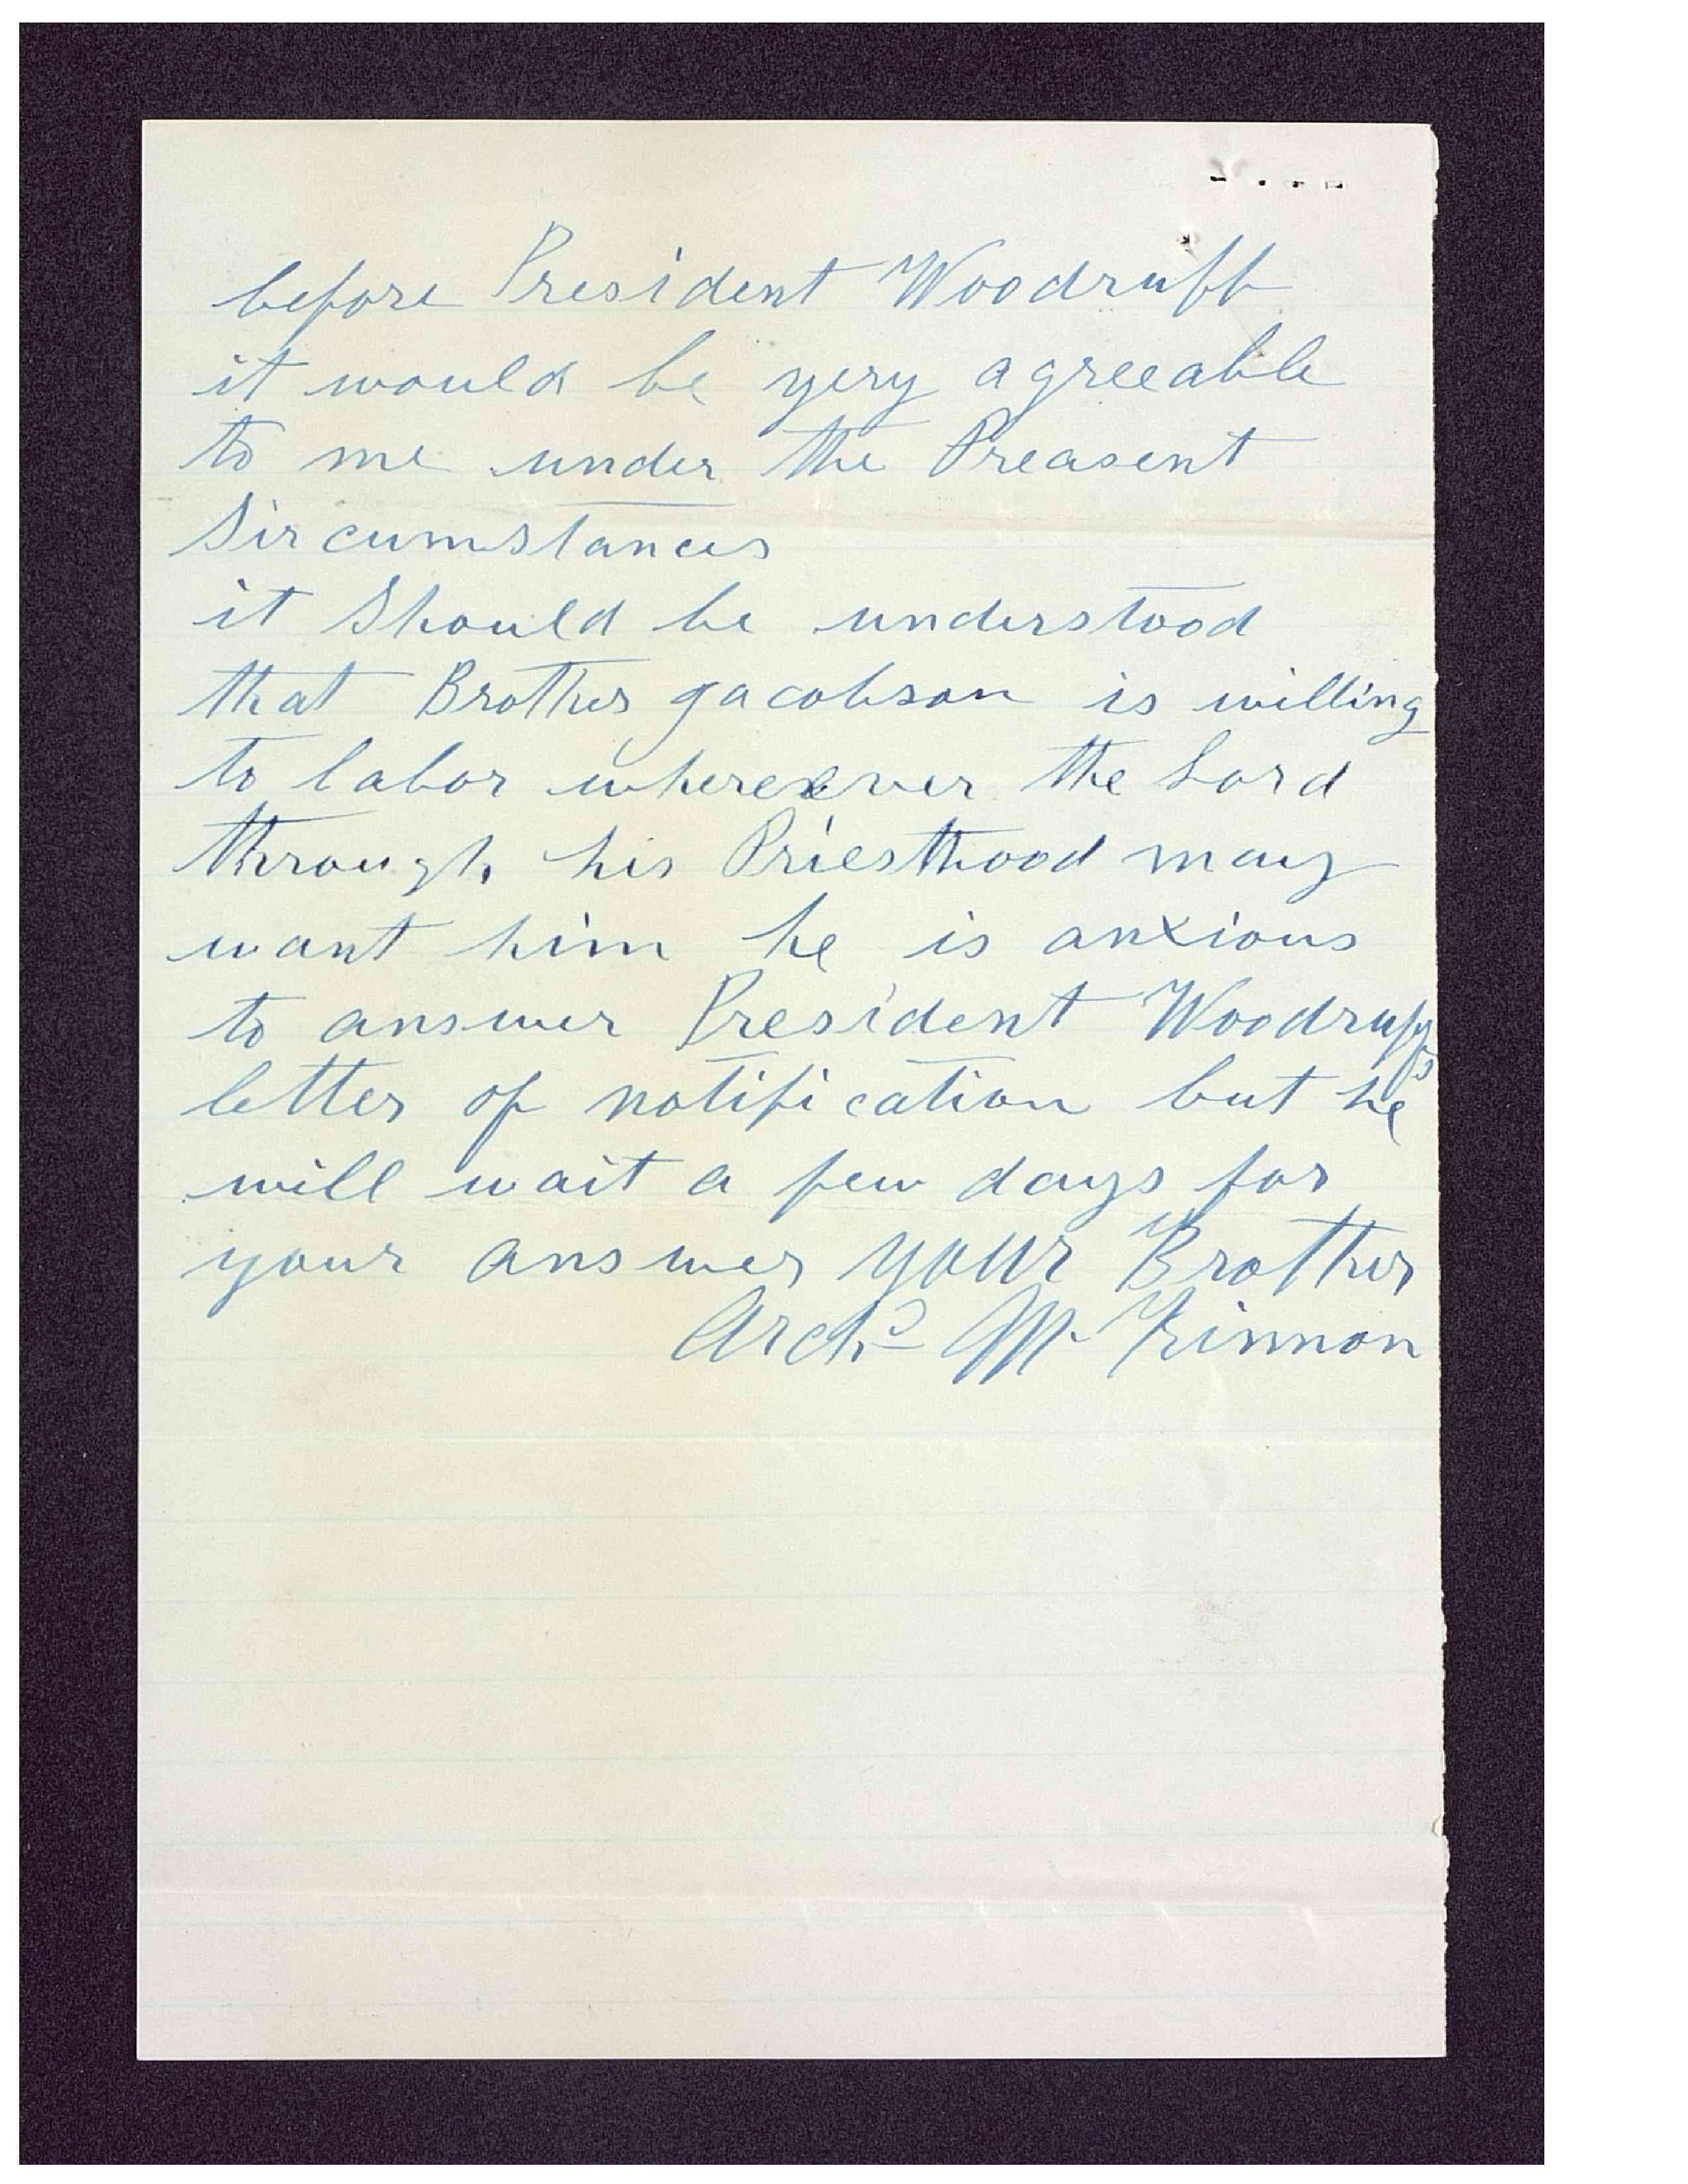 before President Woodruff
it would be very agreeable
to me under the Preasent
Sircumstances
it Should be understood
that Brother Jacobson is willing
to labor whereever the Lord
through his Priesthood may
want him he is anxious
to answer President Woodruff's
letter of notification but he
will wait a few days for
your answer your Brother
Archd McKinnon